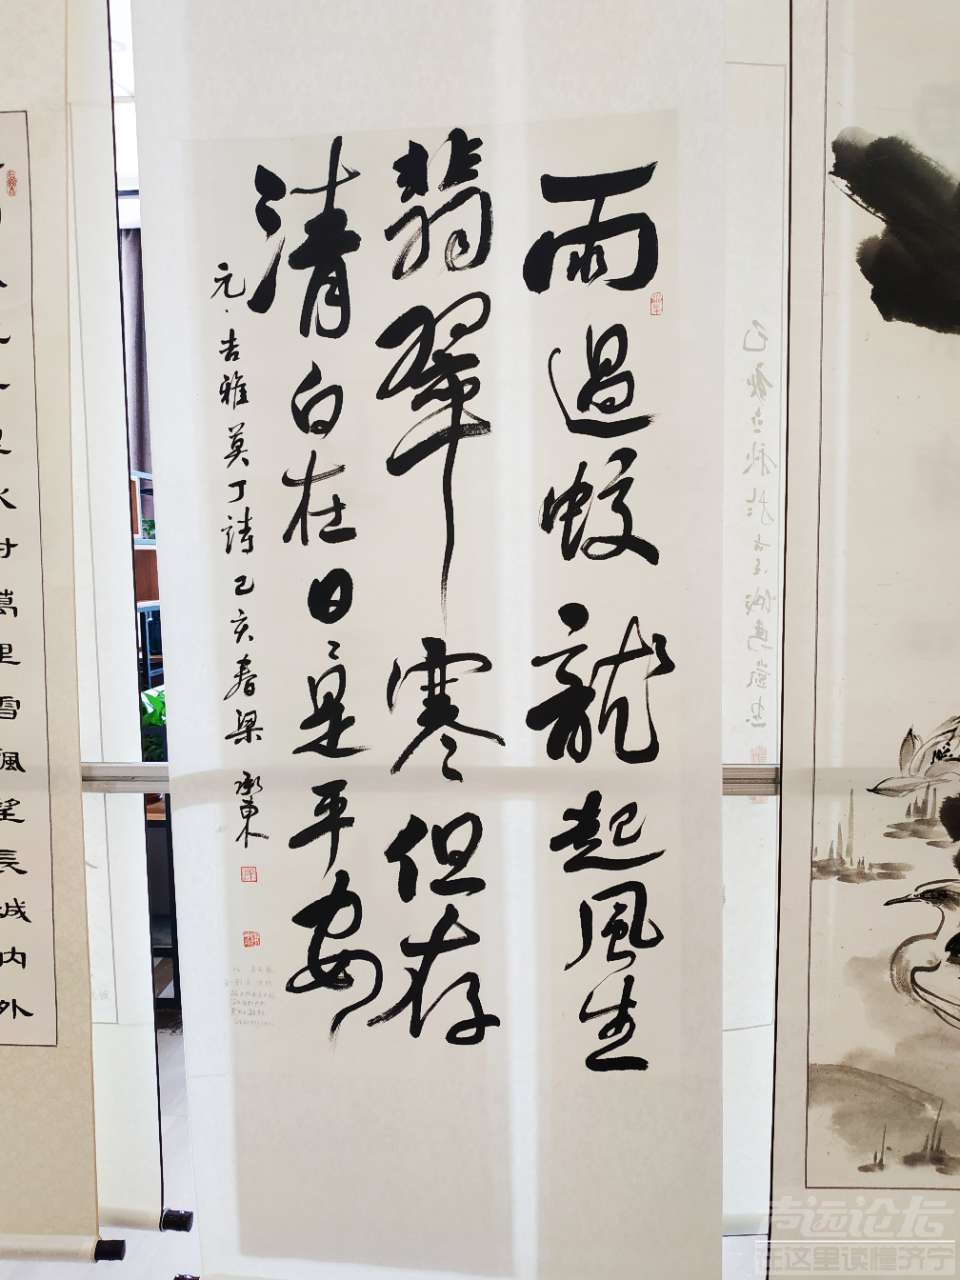 雨過蛟龍起風生
翡翠寒但存
清白在日〻是平安
元·吉雅莫丁詩 己亥春梁承東
萬里雪飄望長城内外
声远论坛
在这里读懂济宁